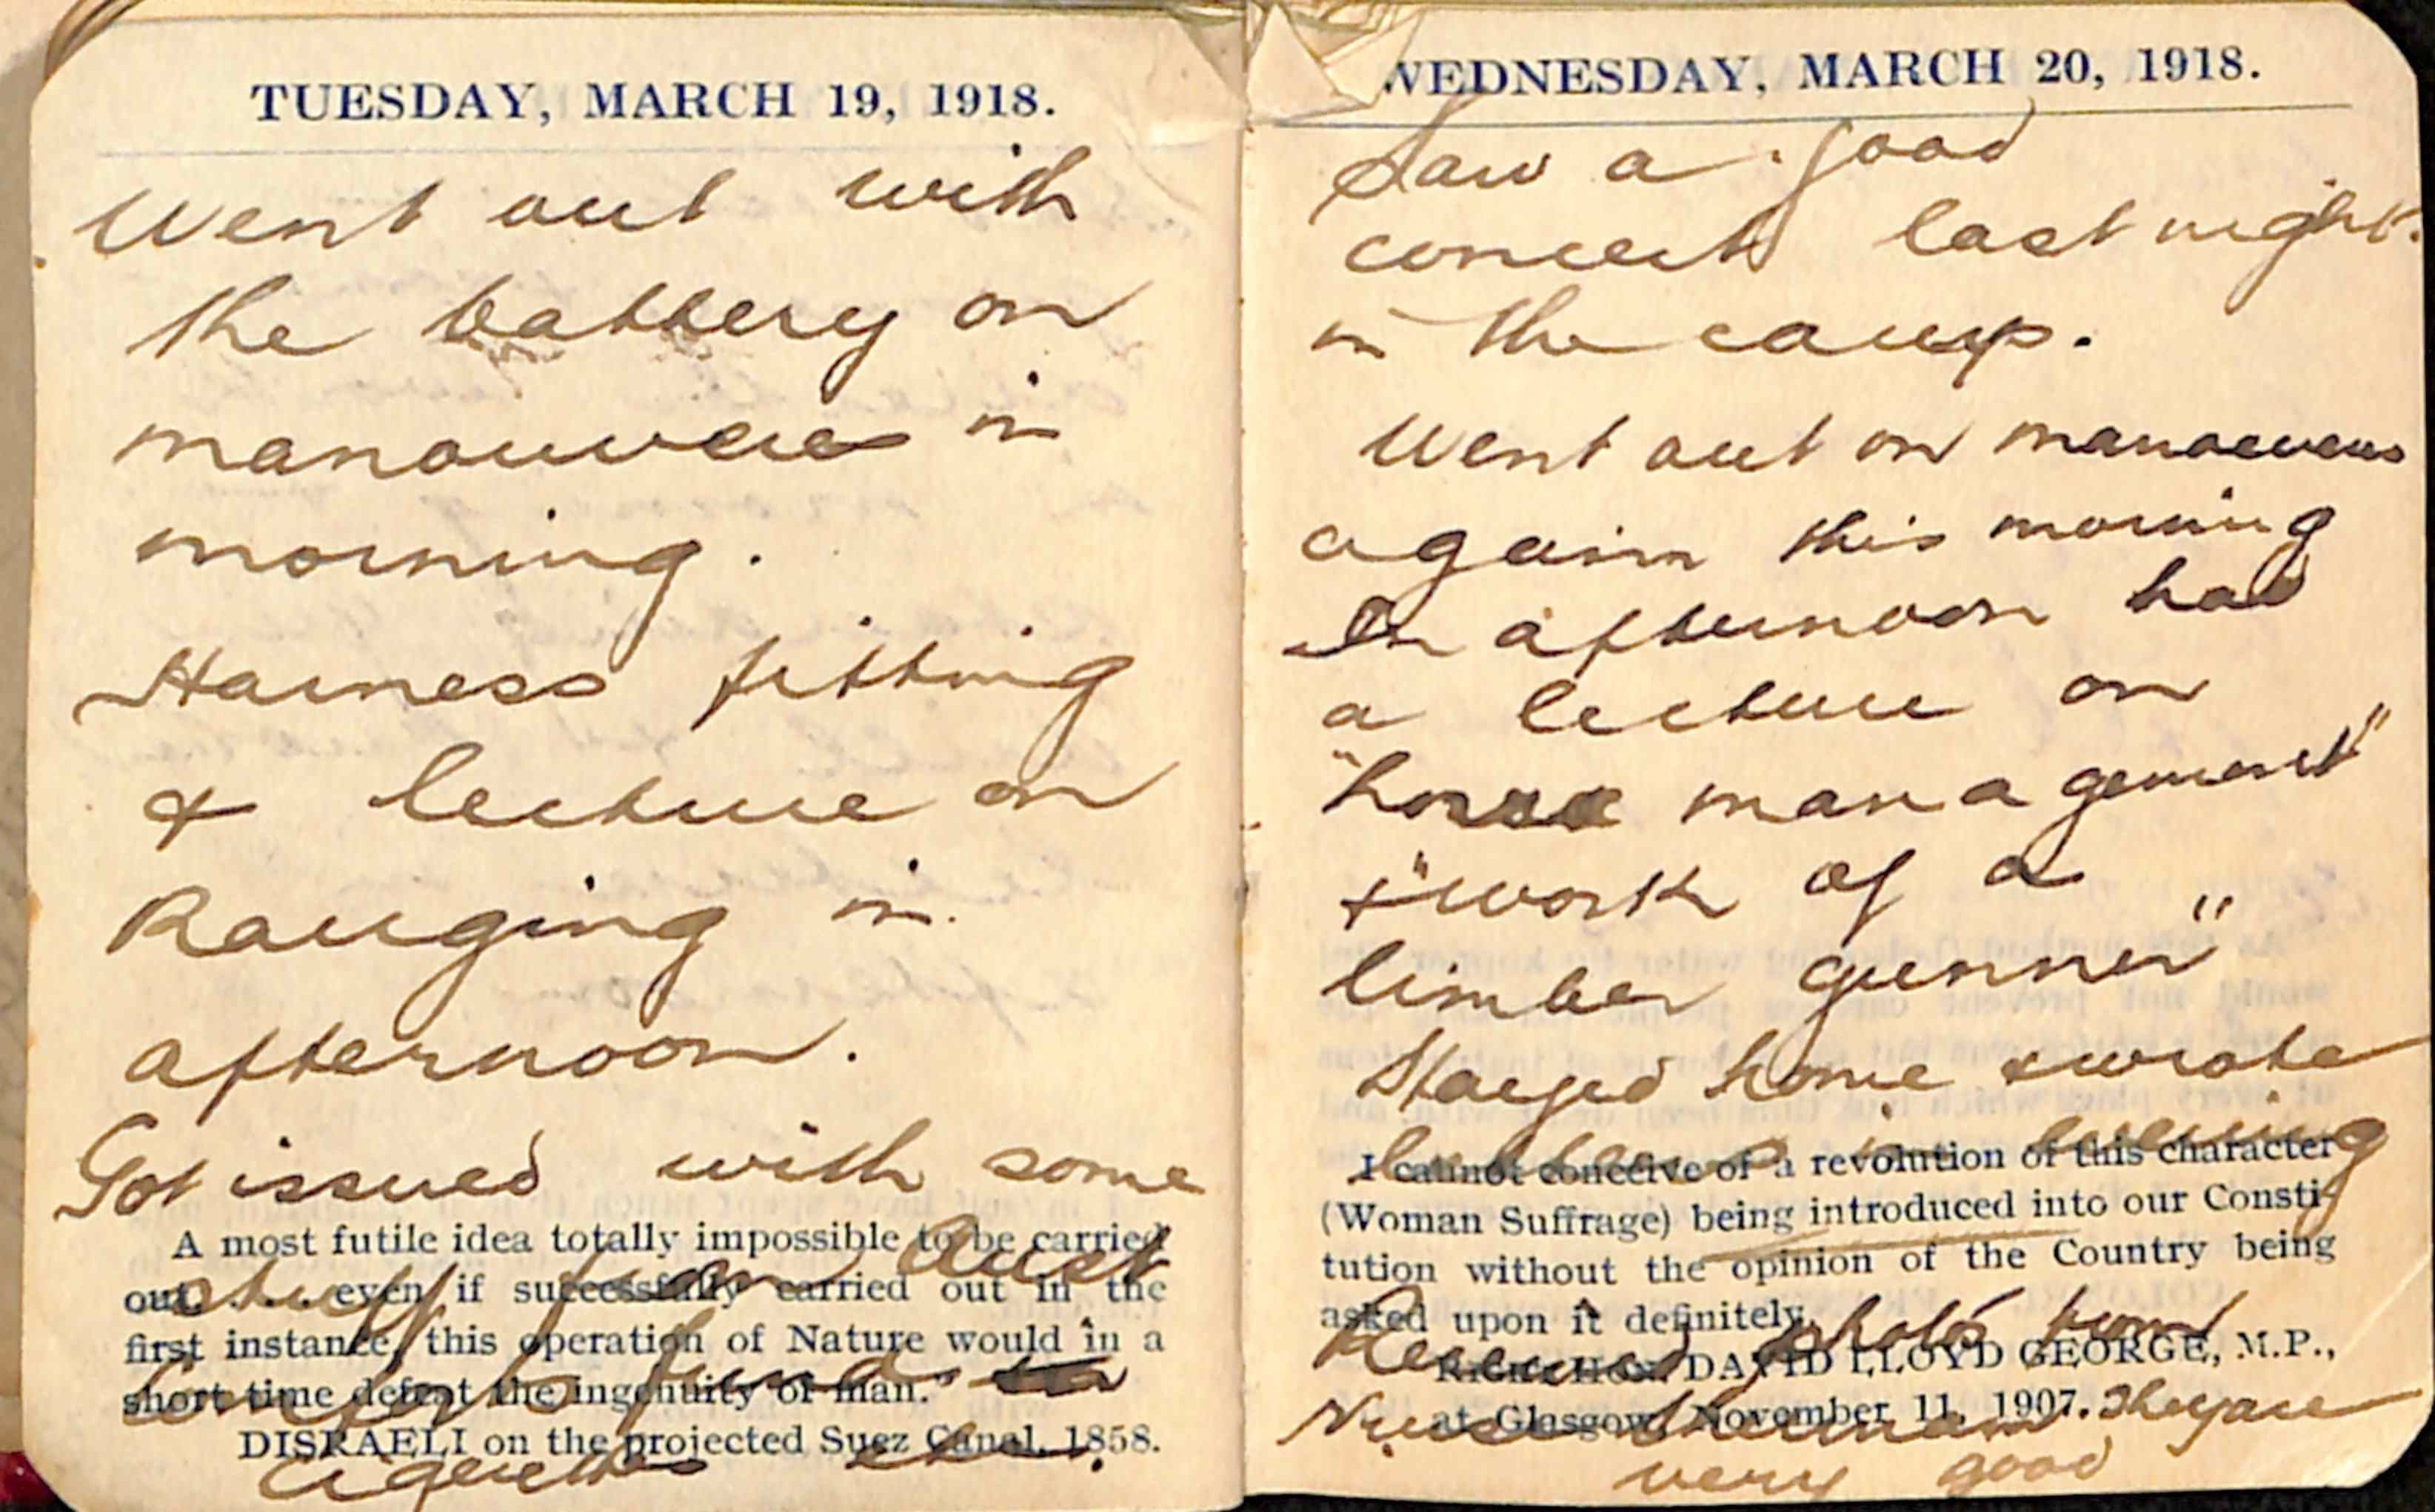 TUESDAY, MARCH 19, 1918.
Went out with
the battery on
manouvers in
morning.
Harness fitting
& lecture on
Ranging in
afternoon.
Got issued with some
A most futile idea totally impossible to be carried
stuff from Aust
out . . . even if successfully carried out in the
first instance, this operation of Nature would in a
Comforts fund.
short time defeat the ingenuity of man."
DISRAELI on the projected Suez Canal, 1858.
Cigarettes etc.
WEDNESDAY, MARCH 20, 1918.
Saw a good
concert last night.
in the camp.
Went out on manoevers
again this morning
In afternoon had
a lecture on
"horse management"
& "work of a
limber gunner"
Stayed home & wrote
letters in evening
I cannot conceive of a revolution of this character
(Woman Suffrage) being introduced into our Consti-
tution without the opinion of the Country being
asked upon it definitely.
Received photos from
RIGHT HON. DAVID LLOYD GEORGE, M.P.,
at Glasgow, November 11, 1907.
Nurse They are
very good